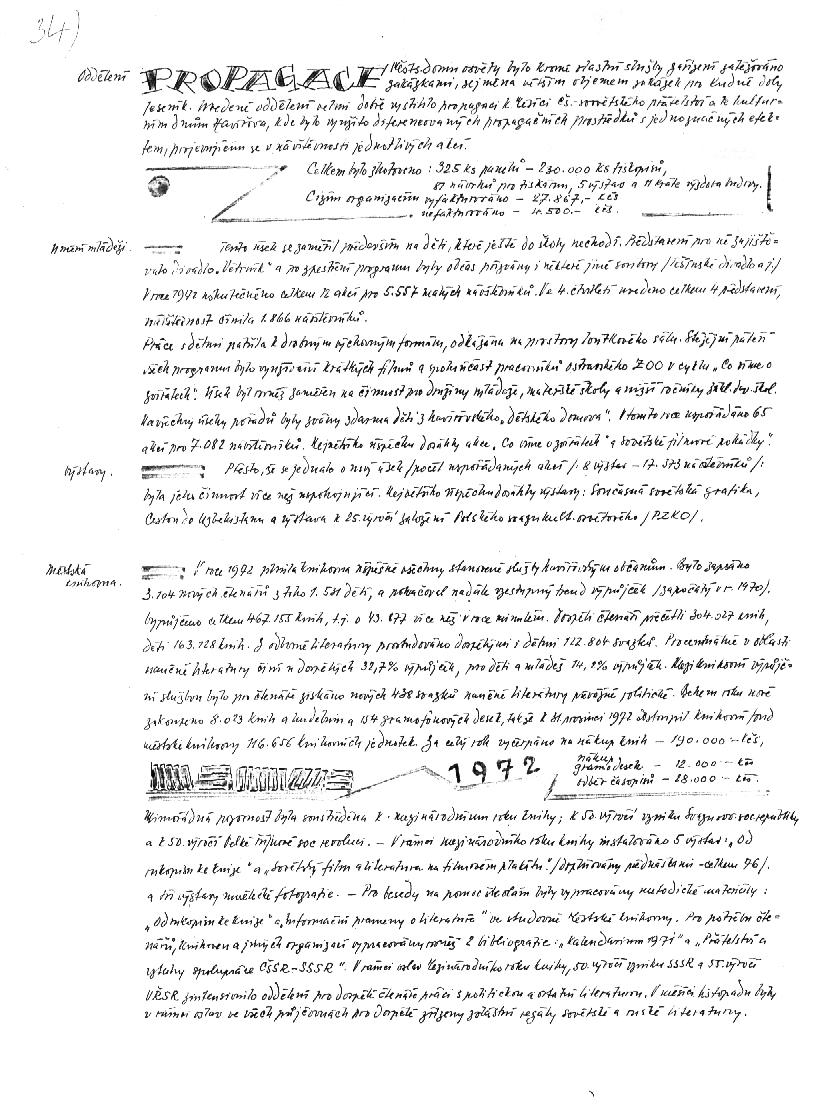 34)
Oddělení PROPAGACE /Městs. domu osvěty bylo kromě vlastní služby zařízení zatěžováno
zakázkami, zejména větším objemem zakázek pro Rudné doly
Jeseník. Uvedené oddělení velmi dobře vystihlo propagaci k Měsíci čs.-sovětského přátelství a k kultur-
ním dnům Havířova, kde bylo využito diferencovaných propagačních prostředků s jednoznačných efek-
tem, projevujícím se v návštěvnosti jednotlivých akcí.
Celkem bylo zhotoveno: 325 ks panelů - 230.000 ks tiskopisů,
87 návrhů pro tiskárnu, 5 výstav a 11 krát výzdoba budovy.
Cizím organizacím vyfakturováno - 27.867,- Kčs
nefakturováno - 4.500.- Kčs.
Umění mládeži. Tento úsek se zaměřil především na děti, které ještě do školy nechodí. Představení pro ně zajišťo-
valo divadlo „Větrník" a pro zpestření programu byly občas přizvány i některé jiné soubory /těšínské divadlo aj./
V roce 1972 uskutečněno celkem 12 akcí pro 5.557 malých návštěvníků. Ve 4. čtvrtletí uvedeno celkem 4 představení,
návštěvnost činila 1.866 návštěvníků.
Práce s dětmi patřila k drobným výchovným formám, odkázána na prostory loutkového sálu. Stěžejní páteří
všech programů bylo využívání krátkých filmů a spoluúčast pracovníků ostravského ZOO v cyklu „Co víme o
zvířátkách". Úsek byl rovněž zaměřen na činnost pro družiny mládeže, mateřské školy a nižší ročníky zákl. dev. škol.
Na všechny úseky pořadů byly zvány zdarma děti z havířovského „dětského domova". V tomto roce uspořádáno 65
akcí pro 7.082 návštěvníků. Největšího úspěchu dosáhly akce „Co víme o zvířátkách" a sovětské filmové pohádky".
Výstavy. Přesto, že se jednalo o nový úsek /počet uspořádaných akcí /: 8 výstav - 17.373 návštěvníků /:
byla jeho činnost více než uspokojující. Největšího úspěchu dosáhly výstavy: Současná sovětská grafika,
Cestou do Uzbekistanu a výstava k 25. výročí založení Polského svazu kult. osvětového /PZKO/.
Městská
knihovna. V roce 1972 plnila knihovna úspěšně všechny stanovené služby havířovským občanům. Bylo zapsáno
3.104 nových čtenářů z toho 1.581 dětí, a pokračoval nadále vzestupný trend výpůjček /započatý v r. 1970/.
Vypůjčeno celkem 467.155 knih, t.j. o 43.877 více než v roce minulém. Dospělí čtenáři přečetli 304.027 knih,
děti 163.128 knih. Z odborné literatury prostudováno dospělými s dětmi 122.804 svazků. Procentuálně v oblasti
naučné literatury činí u dospělých 32,7% výpůjček, pro děti a mládež 14,1% výpůjček. Meziknihovní výpůjč-
ní službou bylo pro čtenáře získáno nových 438 svazků naučné literatury převážně politické. Během roku nově
zakoupeno 8.023 knih a hudebnin a 154 gramofonových desek, takže k 31. prosinci 1972 obstoupil knihovní fond
městské knihovny 116.656 knihovních jednotek. Za celý rok vyčerpáno na nákup knih - 190.000 - Kčs,
1972 nákup
gramodesek - 12.000 - Kčs
odběr časopisů - 28.000 - Kčs.
Mimořádná pozornost byla soustředěna k - Mezinárodnímu roku knihy; k 50. výročí vzniku Svazu sov. soc. republiky
a k 50. výročí Velké říjnové soc revoluci. - V rámci mezinárodního roku knihy instalováno 5 výstav: „Od
rukopisu ke knize" a „Sovětský film a literatura na filmovém plakátu." /doplňovány přednáškami - celkem 76/.
a tři výstavy umělecké fotografie. - Pro besedy na pomoc školám byly vypracovány metodické materiály:
„Od rukopisu ke knize" a „Informační prameny o literatuře" ve studovně Městské knihovny. Pro potřebu čte-
nářů, knihoven a jiných organizací vypracovány rovněž 2 bibliografie: „Kalendarium 1971" a „Přátelství a
vztahy spolupráce ČSSR-SSSR". V rámci oslav Mezinárodního roku knihy, 50. výročí vzniku SSSR a 55. výročí
VŘSR zintensivnilo oddělení pro dospělé čtenáře práci s politickou a ostatní literaturou. V měsíci listopadu byly
v rámci oslav ve všech půjčovnách pro dospělé zřízeny zvláštní regály sovětské a ruské literatury.